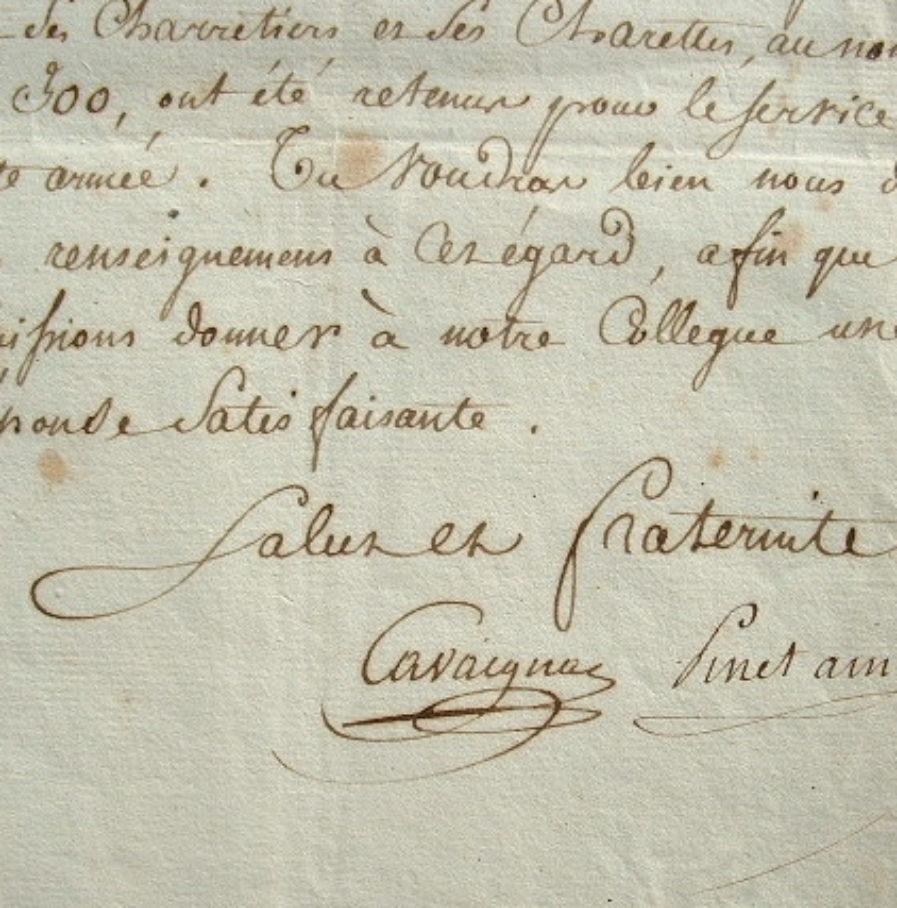 des Charretiers et des Charettes, au nom
300, ont été retenus pour le service
te armée. Tu voudras bien nous d
renseignemens à cet égard, afin que
uissions donner à notre Collegue une
ponse Satisfaisante.
Salut et fraternité
Cavaignac Pinet ain